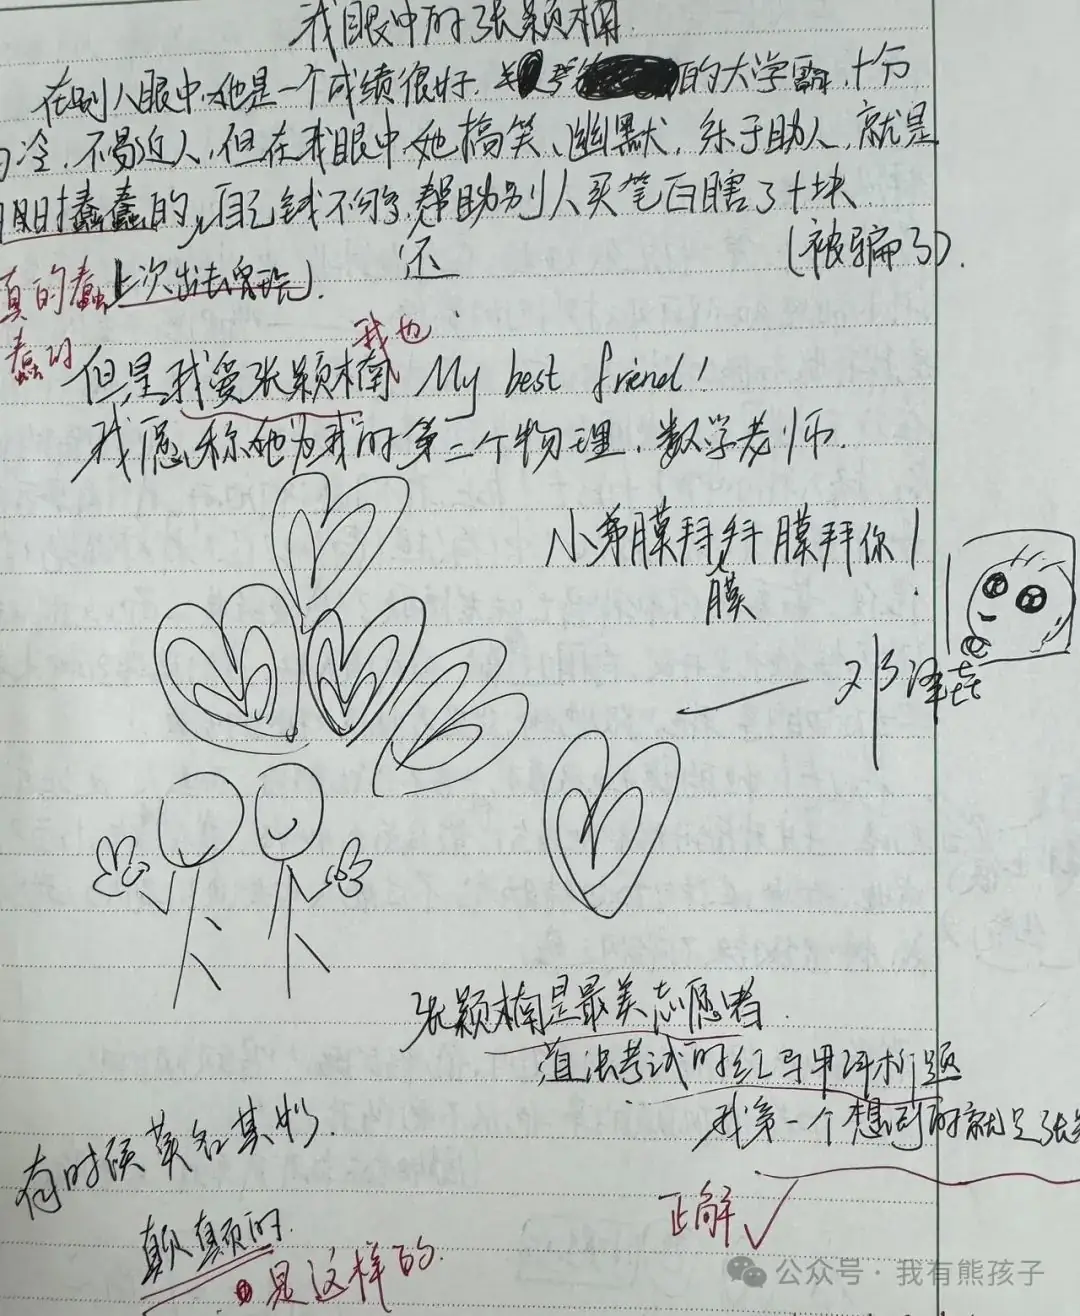 我眼中的张颖楠
在别人眼中,她是一个成绩很好,的大学霸,十分
冷,不易近人,但在我眼中,她搞笑、幽默,乐于助人,就是
时蠢蠢的,自己钱不够,还帮助别人买笔白瞎了十块
(被骗了).
真的蠢上次出去
蠢的
但是我爱张颖楠 My best friend!
我也
我愿称她为我的第二个物理,数学老师.
小弟膜拜膜拜膜拜你!
——邓泽垚
张颖楠是最美志愿者.
道法考试的红马甲评析题
我第一个想到的就是张
有时候莫名其妙.
颠颠的.
是这样的.
正解✓
公众号·我有熊孩子